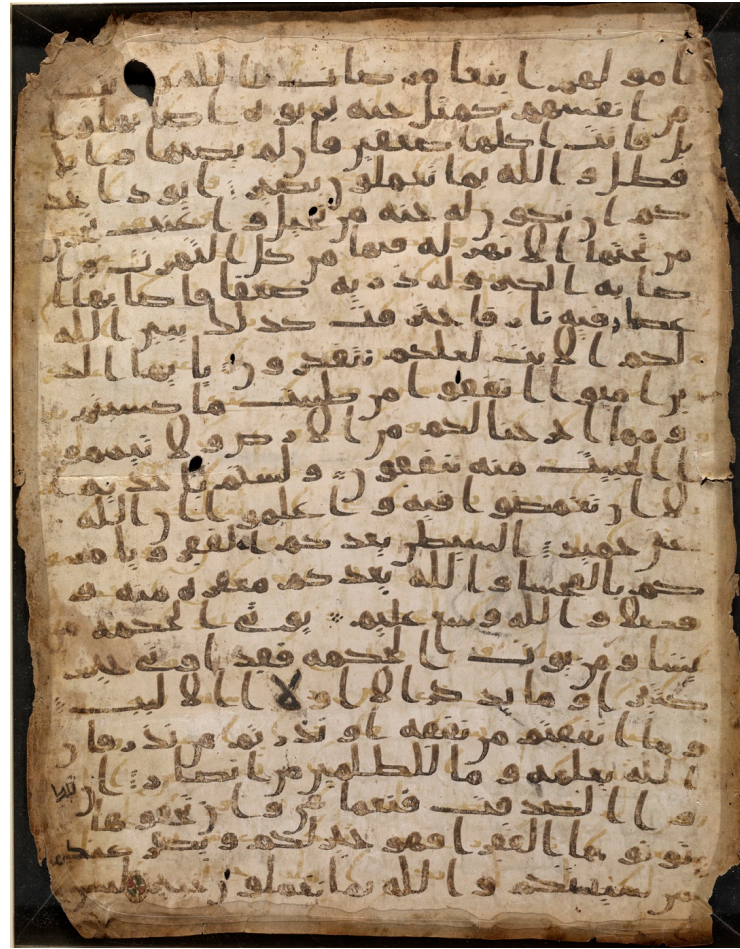 امولهم ابتغا مرضات الله و
من انفسهم كمثل جنه بربوه اصابها وا
بل فاتت اكلها ضعفين فان لم يصبها وا
فطل و الله بما تعملون بصير ايود احد
كم ان تكون له جنه من نخيل و اعنب تجري
من تحتها الانهر له فيها من كل الثمرت وا
صابه الكبر وله ذريه ضعفا فاصابها ا
عصار فيه نار فاحترقت كذلك يبين الله
لكم الايت لعلكم تتفكرون يايها الذ
ين امنوا انفقوا من طيبت ما كسبتم
و مما اخرجنا لكم من الارض و لا تيمموا
ا الخبيث منه تنفقون و لستم باخذيه ا
لا ان تغمضوا فيه و اعلموا ان الله
غني حميد الشيطن يعدكم الفقر و يامر
كم بالفحشا و الله يعدكم مغفره منه و
فضلا و الله وسع عليم يوتي الحكمه من
يشا و من يوت الحكمه فقد اوتي خير
كثيرا و ما يذكر الا اولا الالبب
و ما انفقتم من نفقه او نذرتم من نذر فان
الله يعلمه و ما للظلمين من انصار ان تبد
و ا الصدقت فنعما هي و ان تخفوها
و توتوها الفقرا فهو خير لكم و يكفر عنكم
من سيتكم و الله بما تعملون خبير ليس